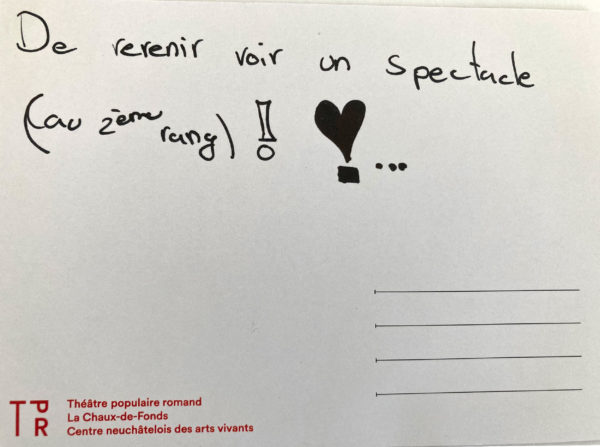 De revenir voir un spectacle
(au 2ème rang) ! ...
TPR
Théâtre populaire romand
La Chaux-de-Fonds
Centre neuchâtelois des arts vivants